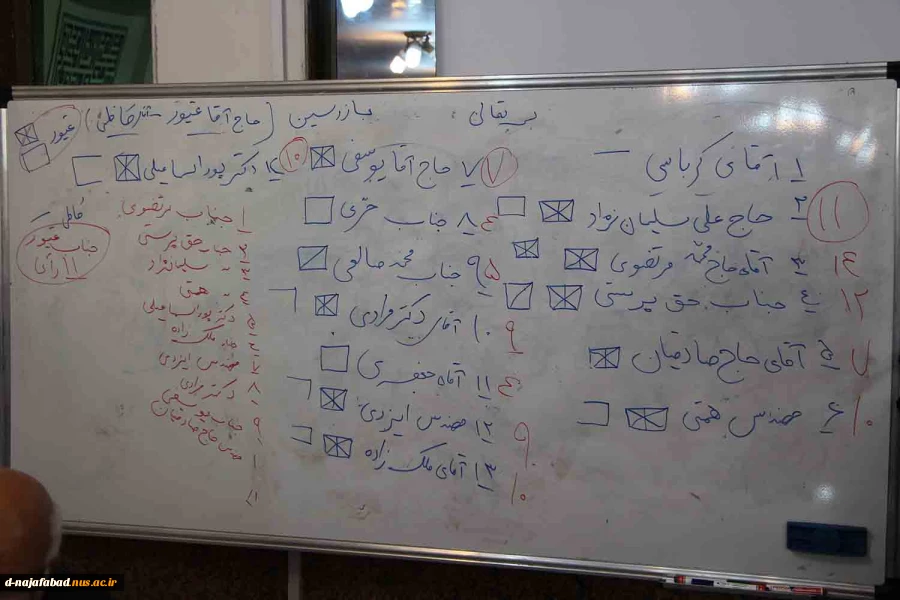 بازرسین (حاج آقا غیور - کاظمی)
غیور
۱ آقای کرباسی
۲ حاج علی سلیمان نژاد ۱۱
۳ آقای حاج محمد مرتضوی ۱۴
۴ جناب حق پرستی ۱۲
۵ آقای حاج صادقیان ۷
۶ مهندس همتی ۱۰
۷ حاج آقا یوسفی ۷
۸ جناب حرّی ۴
۹ جناب محمد صالحی ۵
۱۰ آقای دکتر مرادی ۹
۱۱ آقای جعفری ۴
۱۲ مهندس ایزدی ۹
۱۳ آقای ملک زاده ۱۰
۱۴ دکتر پور اسماعیلی ۱۰
۱ جناب مرتضوی
۲ جناب حق پرستی
۳ سلیمان نژاد
۴ همتی
۵ دکتر پور اسماعیلی
۶ ملک زاده
۷ مهندس ایزدی
۸ دکتر مرادی
۹ جناب یوسفی
حاج صادقیان
کاظمی
جناب غیور
۱۱ رأی
d-najafabad.nus.ac.ir